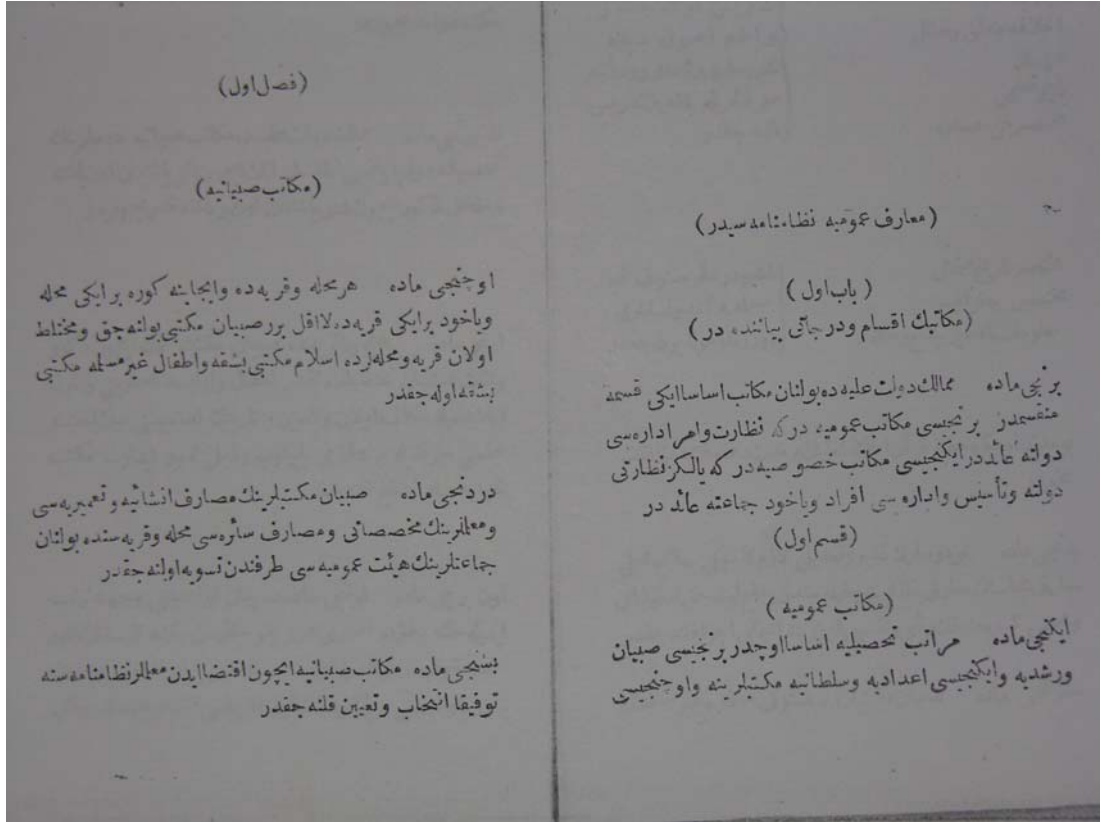 (معارف عمومیه نظامنامه سیدر)
(باب اول)
(مکاتبك اقسام ودرجاتی بیاننده در)
برنجی ماده ممالك دولت علیه ده بولنان مکاتب اساسا ایکی قسمه
منقسمدر برنجیسی مکاتب عمومیه در که نظارت وامر اداره سی
دولته عائد در ایکنجیسی مکاتب خصوصیه در که یالکز نظارتی
دولته وتأسیس واداره سی افراد ویاخود جماعته عائد در
(قسم اول)
(مکاتب عمومیه)
ایکنجی ماده مراتب تحصیلیه اساسا اوچدر برنجیسی صبیان
ورشدیه وایکنجیسی اعدادیه وسلطانیه مکتبلرینه واوچنجیسی
(فصل اول)
(مکاتب صبیانیه)
اوچنجی ماده هر محله وقریه ده وایجابنه کوره بر ایکی محله
ویاخود بر ایکی قریه ده لااقل برر صبیان مکتبی بولنه جق ومختلط
اولان قریه ومحله لرده اسلام مکتبی بشقه واطفال غیر مسلمه مکتبی
بشقه اوله جقدر
دردنجی ماده صبیان مکتبلرینك مصارف انشائیه وتعمیریه سی
ومعلملرینك مخصصاتی ومصارف سائره سی محله وقریه سنده بولنان
جماعتلرینك هیئت عمومیه سی طرفندن تسویه اولنه جقدر
بشنجی ماده مکاتب صبیانیه ایچون اقتضا ایدن معلملر نظامنامه سنه
توفیقا انتخاب وتعیین قلنه جقدر